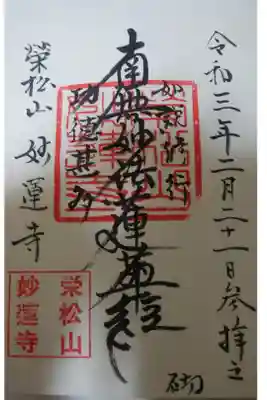 令和三年二月二十一日参拝之
砌
如説修行
南無妙法蓮華経
功徳甚多
榮松山 妙蓮寺
栄松山
妙蓮寺